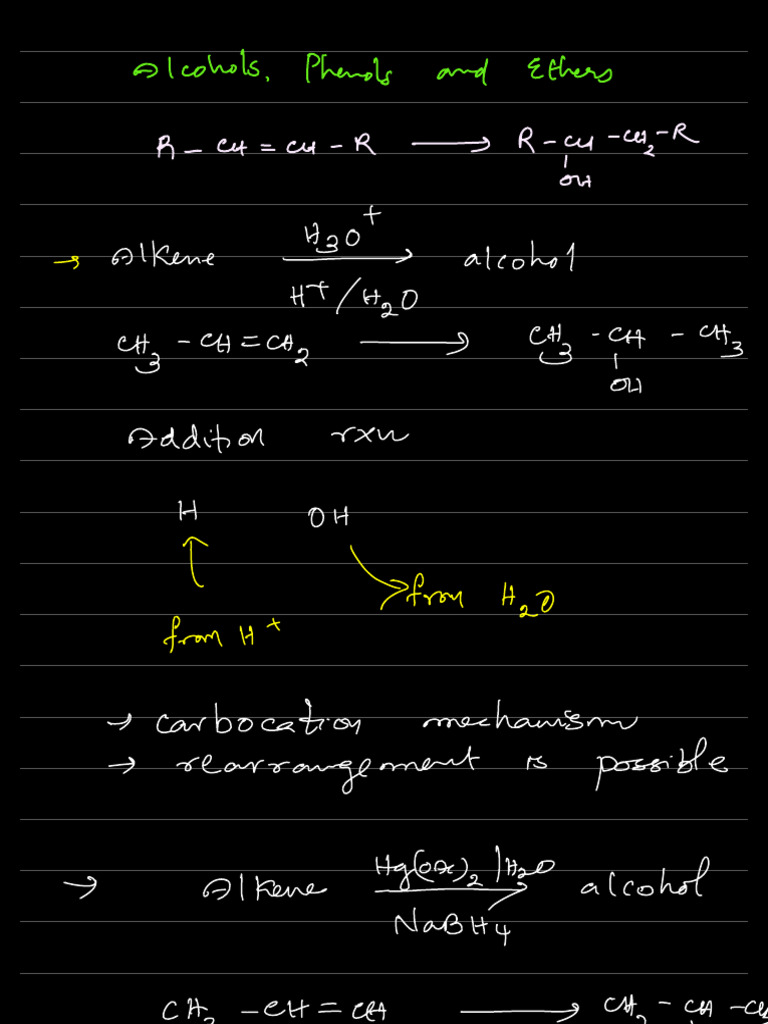 Alcohols, Phenols and Ethers
R – CH = CH – R ⟶ R – CH – CH₂ – R
OH
→ Alkene H₃O⁺ ⟶ alcohol
H⁺ / H₂O
CH₃ – CH = CH₂ ⟶ CH₃ – CH – CH₃
OH
Addition rxn
H OH
from H₂O
from H⁺
→ carbocation mechanism
→ rearrangement is possible
→ Alkene Hg(OAc)₂ | H₂O ⟶ alcohol
NaBH₄
CH₃ – CH = CH ⟶ CH₃ – CH –